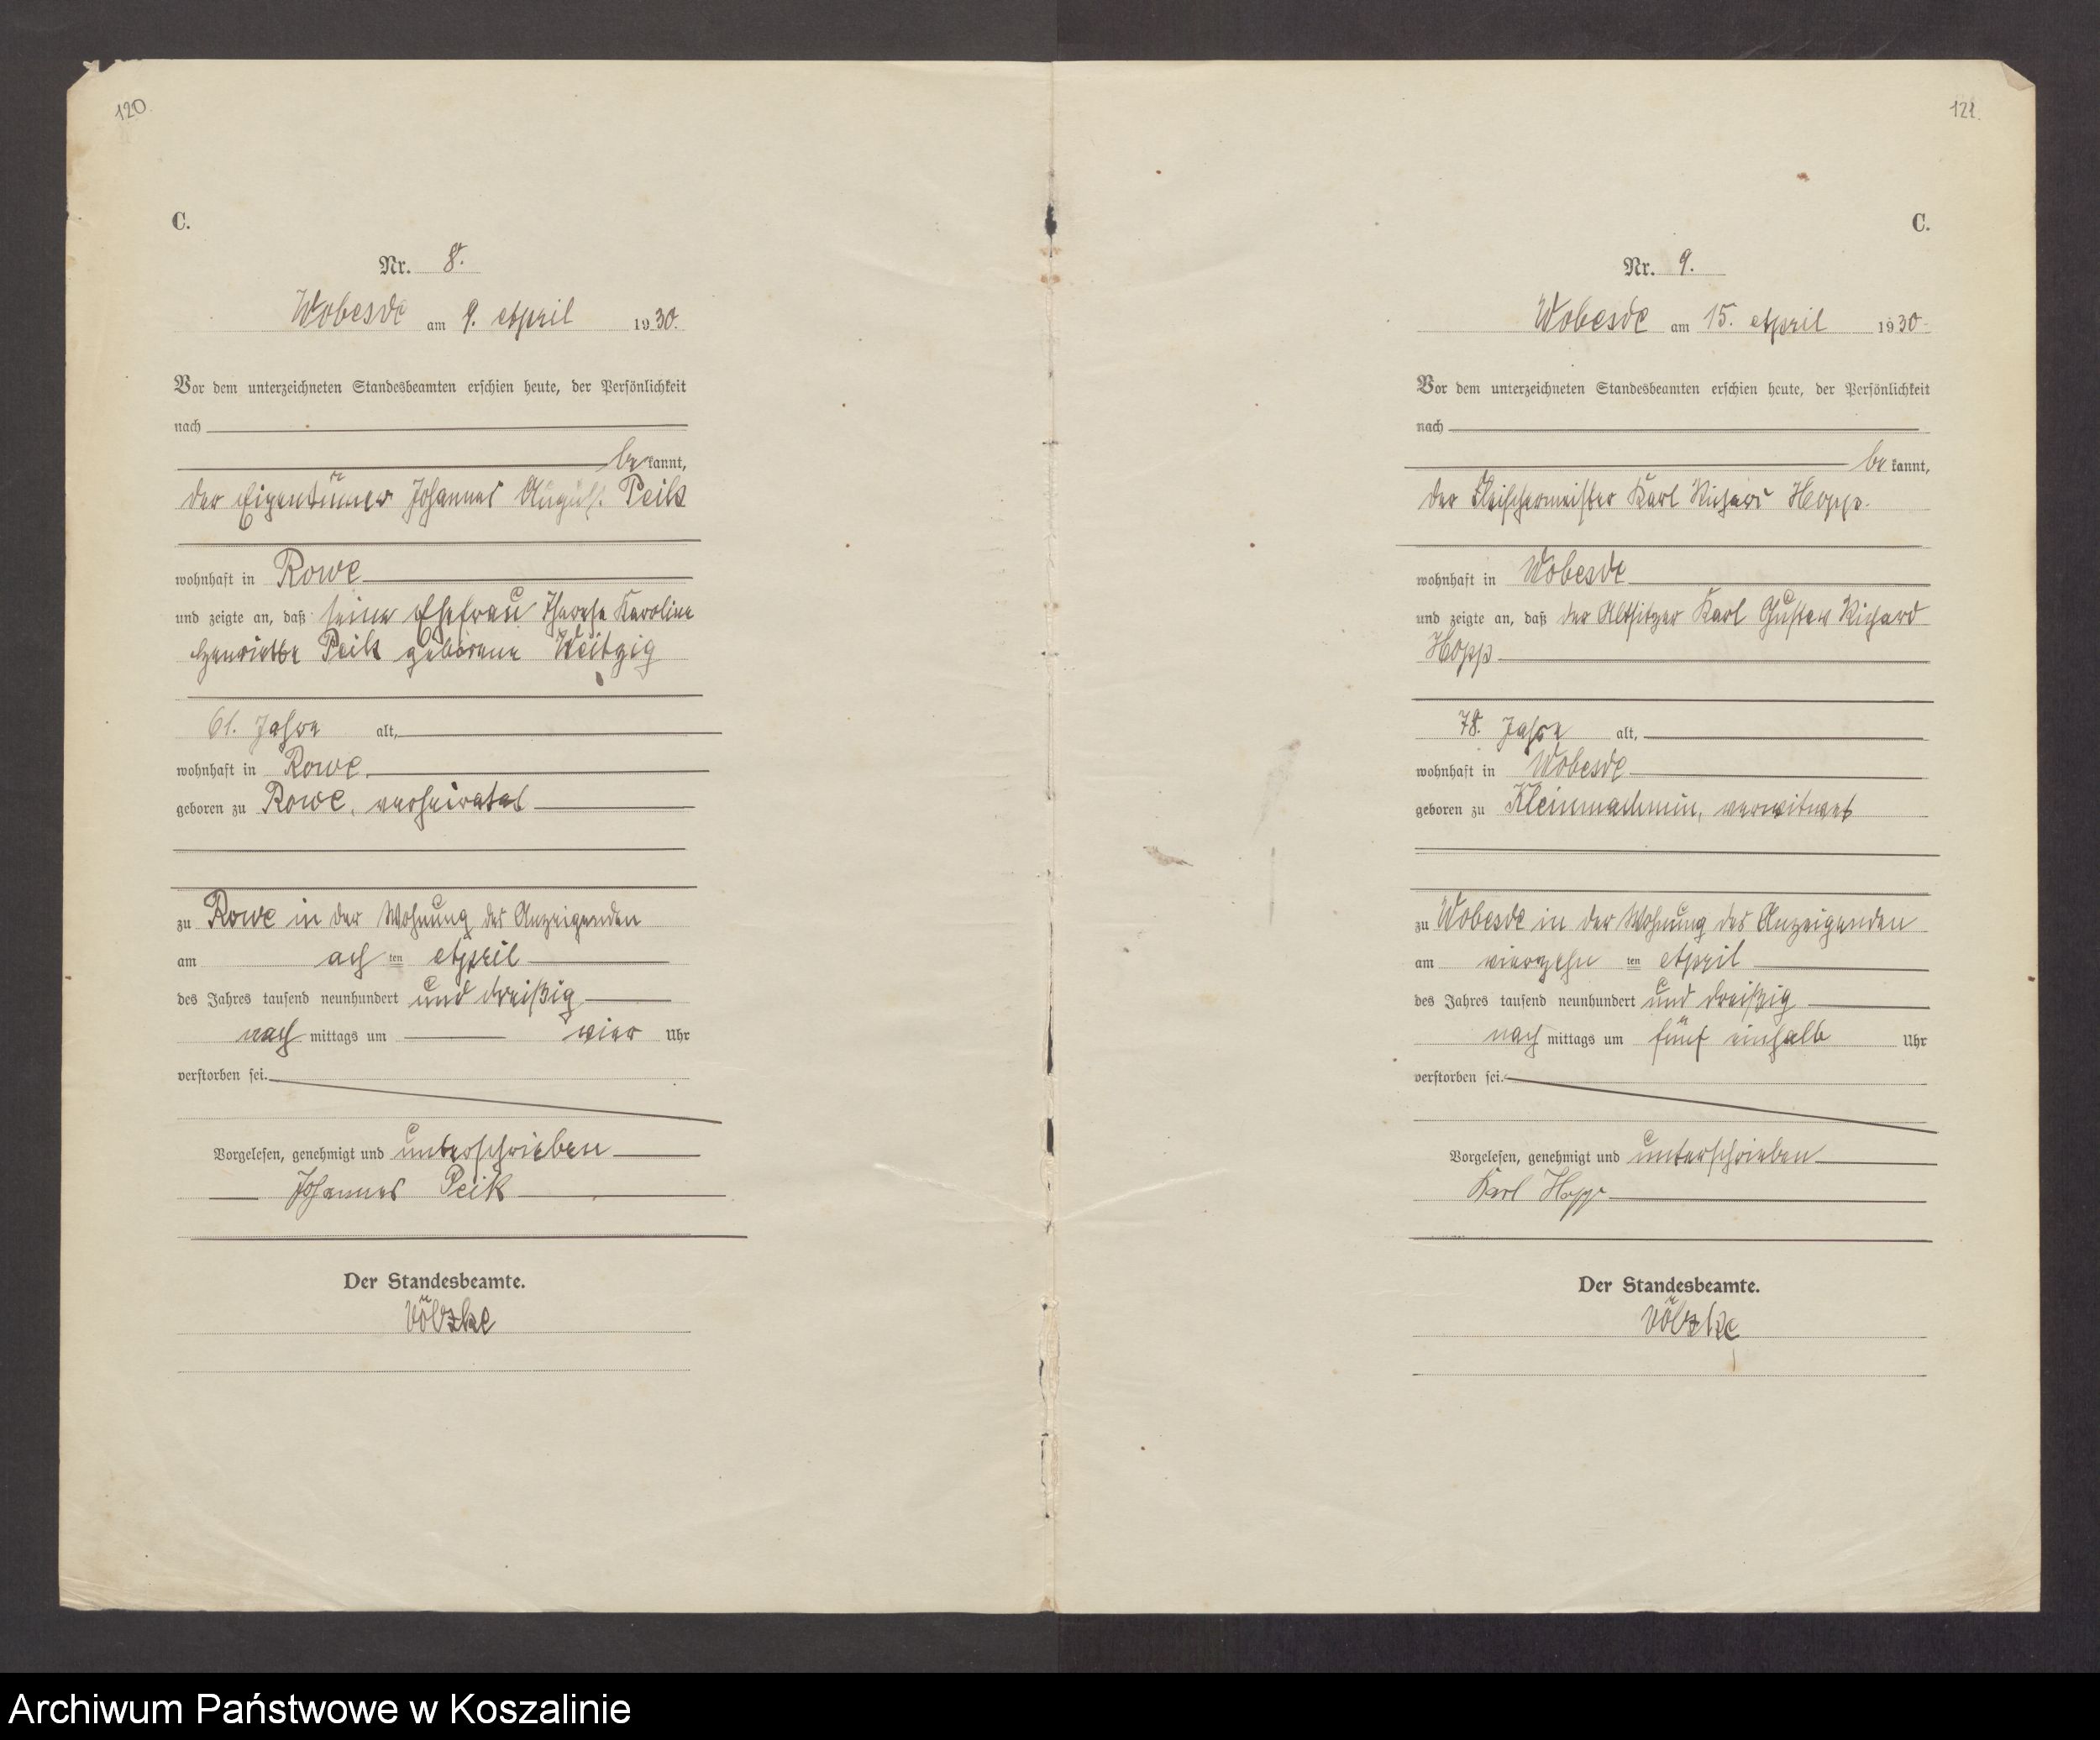 120.
C.
Nr. 8.
Wobesde am 9. April 1930.
Vor dem unterzeichneten Standesbeamten erschien heute, der Persönlichkeit
nach
be kannt,
der Eigentümer Johannes August Peik
wohnhaft in Rowe
und zeigte an, daß seine Ehefrau Therese Karoline
Henriette Peik geborene Weitzig
61. Jahre alt,
wohnhaft in Rowe
geboren zu Rowe, verheiratet
zu Rowe in der Wohnung des Anzeigenden
am ach ten April
des Jahres tausend neunhundert und dreißig
nach mittags um vier Uhr
verstorben sei.
Vorgelesen, genehmigt und unterschrieben
Johannes Peik
Der Standesbeamte.
Völzke
121.
C.
Nr. 9.
Wobesde am 15. April 1930
Vor dem unterzeichneten Standesbeamten erschien heute, der Persönlichkeit
nach
be kannt,
der Fleischermeister Karl Richard Hopp.
wohnhaft in Wobesde
und zeigte an, daß der Altsitzer Karl Gustav Richard
Hopp
78. Jahre alt,
wohnhaft in Wobesde
geboren zu Kleinmachmin, verwitwet
zu Wobesde in der Wohnung des Anzeigenden
am vierzehn ten April
des Jahres tausend neunhundert und dreißig
nach mittags um fünf einhalb Uhr
verstorben sei.
Vorgelesen, genehmigt und unterschrieben
Karl Hopp
Der Standesbeamte.
Völzke
Archiwum Państwowe w Koszalinie